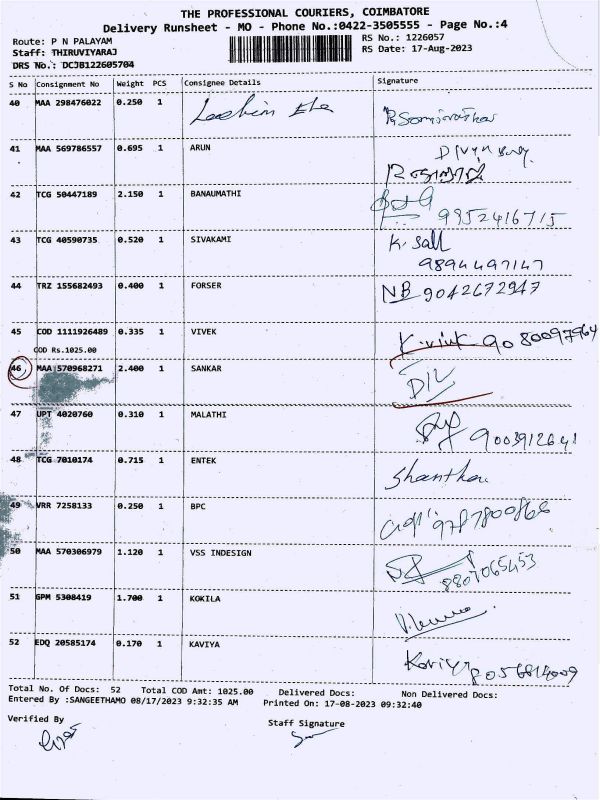 THE PROFESSIONAL COURIERS, COIMBATORE
Delivery Runsheet - MO - Phone No.:0422-3505555 - Page No.:4
Route: P N PALAYAM RS No.: 1226057
Staff: THIRUVIYARAJ RS Date: 17-Aug-2023
DRS No.: DCJB122605704
S No Consignment No Weight PCS Consignee Details Signature
40 MAA 298476022 0.250 1
41 MAA 569786557 0.695 1 ARUN
42 TCG 50447189 2.150 1 BANAUMATHI
9952416715
43 TCG 40590735 0.520 1 SIVAKAMI K. Sall
9894497147
44 TRZ 155682493 0.400 1 FORSER NB 9042672947
45 COD 1111926489 0.335 1 VIVEK K. vivek 9080097964
COD Rs.1025.00
46 MAA 570968271 2.400 1 SANKAR D/L
47 UPT 4020760 0.310 1 MALATHI 9003912641
48 TCG 7010174 0.715 1 ENTEK Shantha
49 VRR 7258133 0.250 1 BPC 9787800866
50 MAA 570306979 1.120 1 VSS INDESIGN 8807065453
51 GPM 5308419 1.700 1 KOKILA
52 EDQ 20585174 0.170 1 KAVIYA Kaviya 8056814009
Total No. Of Docs: 52 Total COD Amt: 1025.00 Delivered Docs: Non Delivered Docs:
Entered By :SANGEETHAMO 08/17/2023 9:32:35 AM Printed On: 17-08-2023 09:32:40
Verified By Staff Signature